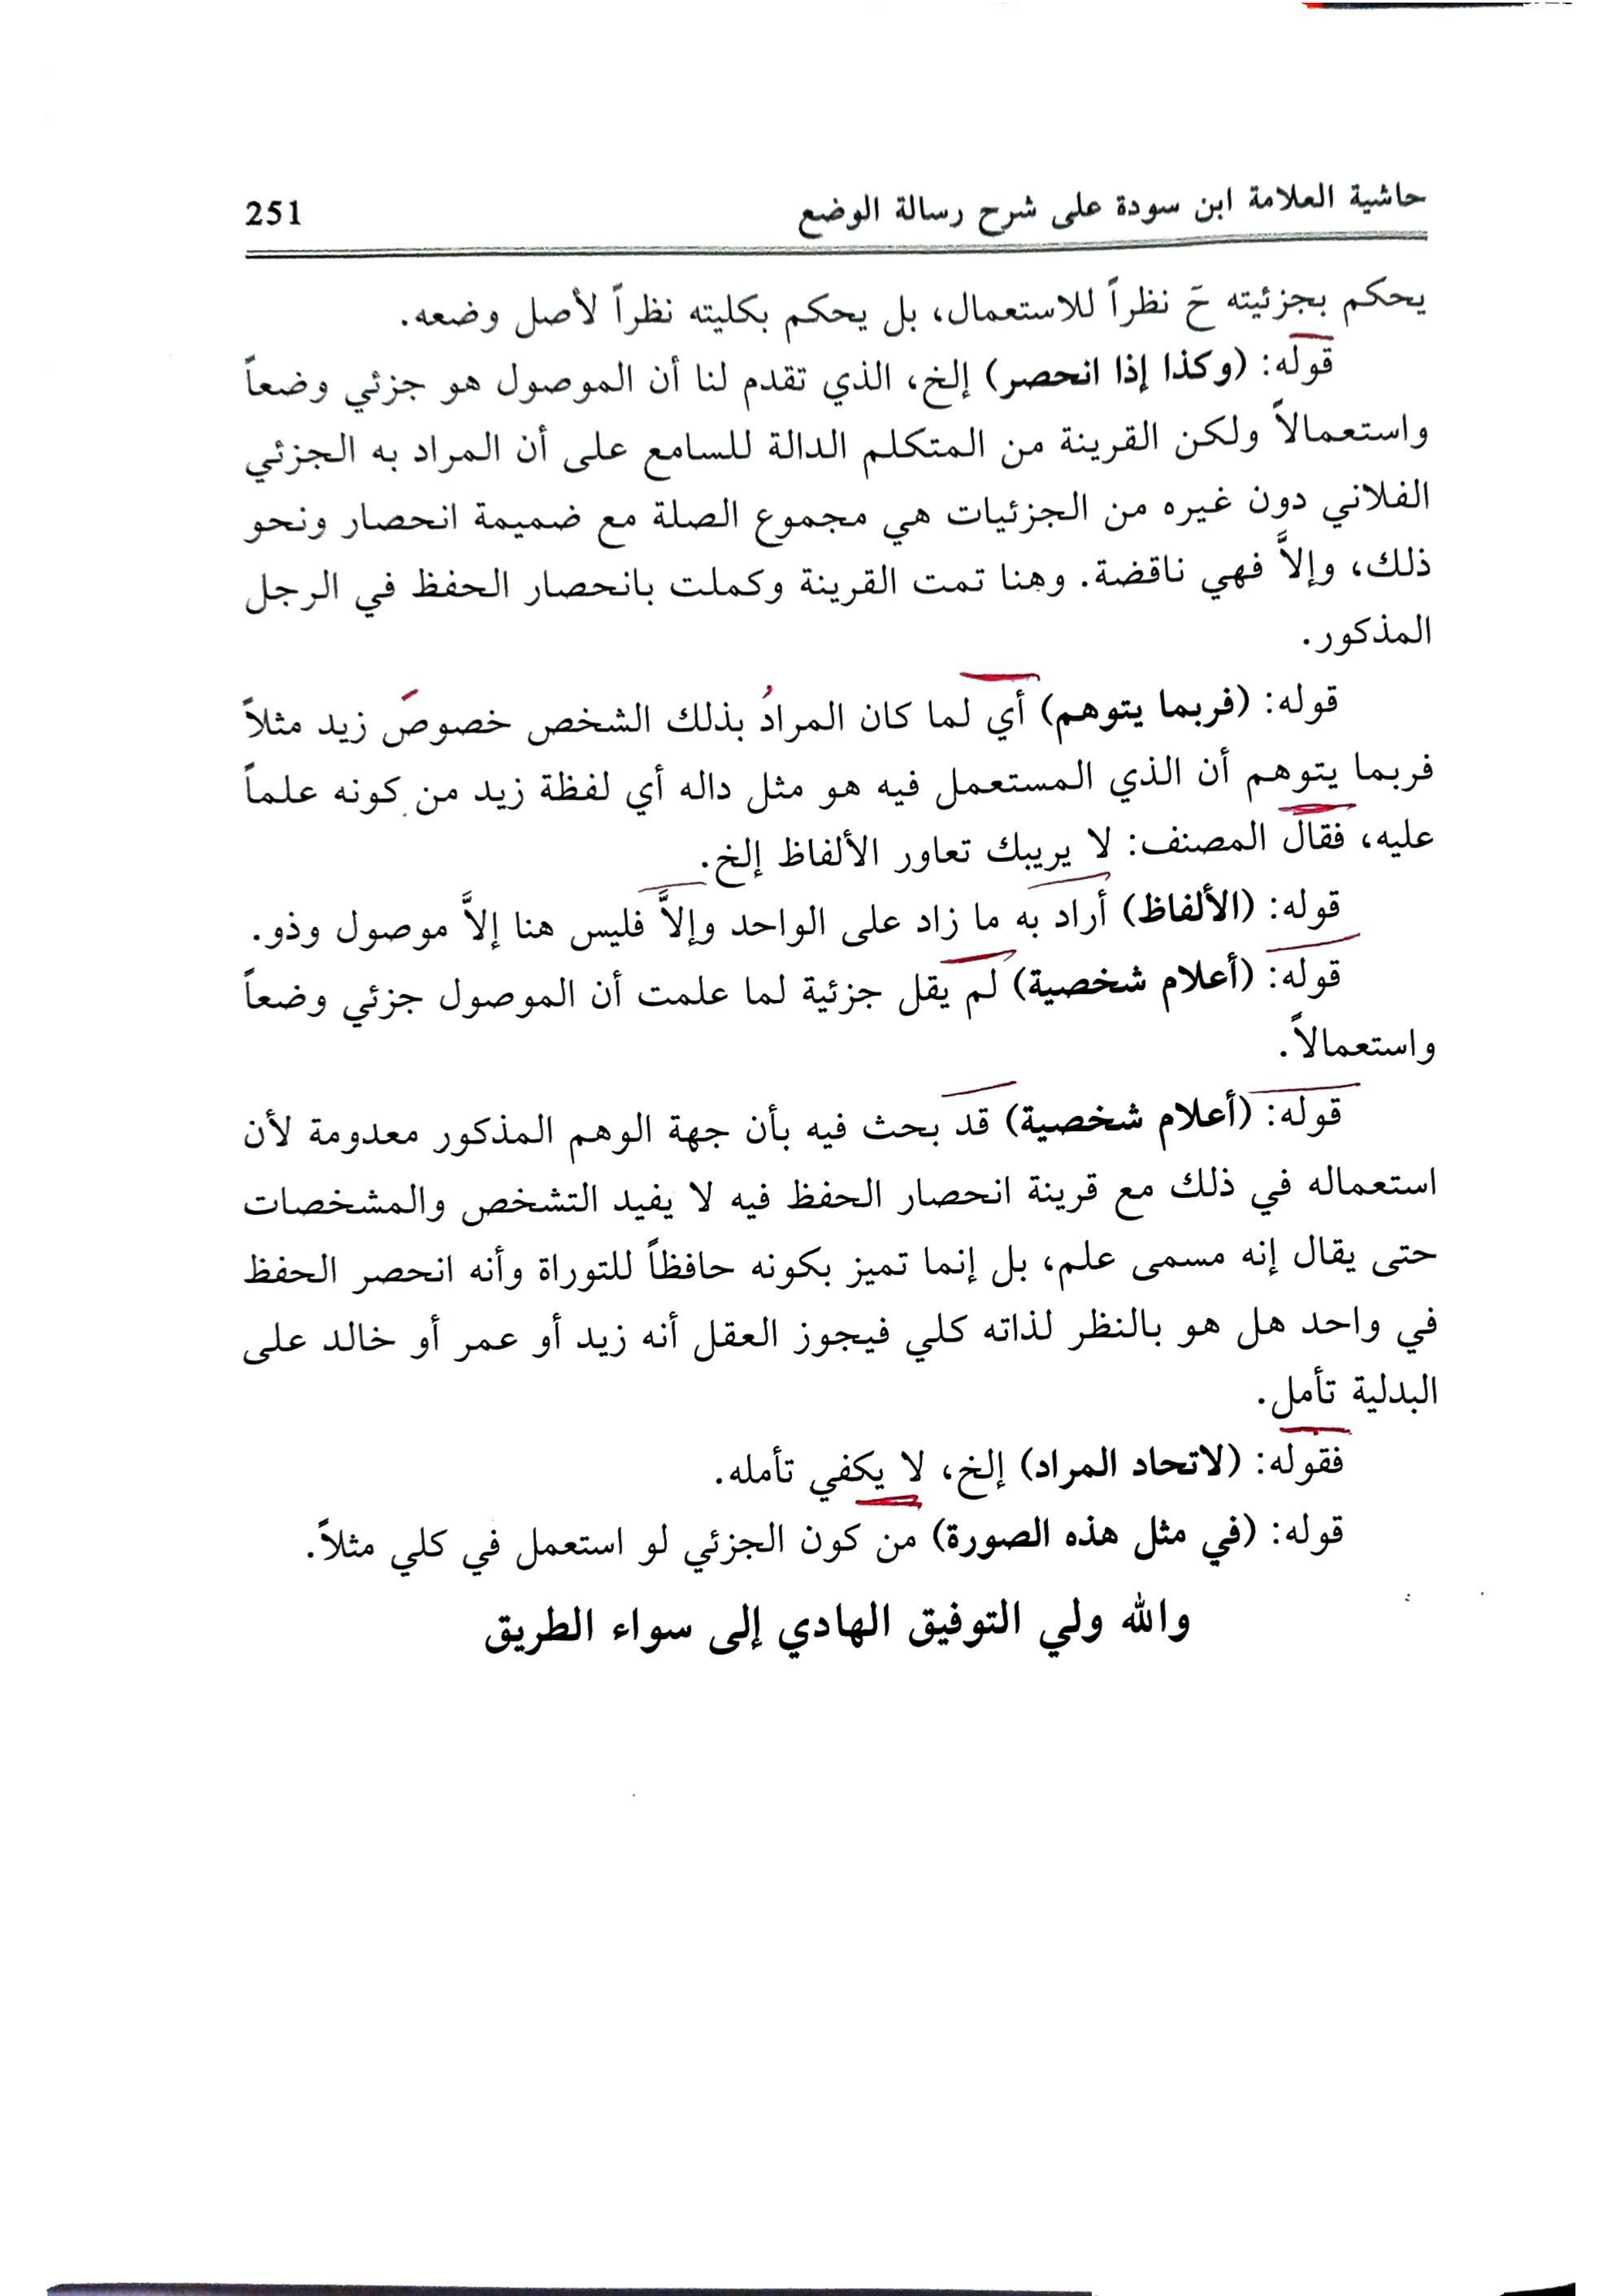 حاشية العلامة ابن سودة على شرح رسالة الوضع 251
يحكم بجزئيته حَ نظراً للاستعمال، بل يحكم بكليته نظراً لأصل وضعه.
قوله: (وكذا إذا انحصر) إلخ، الذي تقدم لنا أن الموصول هو جزئي وضعاً
واستعمالاً ولكن القرينة من المتكلم الدالة للسامع على أن المراد به الجزئي
الفلاني دون غيره من الجزئيات هي مجموع الصلة مع ضميمة انحصار ونحو
ذلك، وإلاَّ فهي ناقضة. وهنا تمت القرينة وكملت بانحصار الحفظ في الرجل
المذكور.
قوله: (فربما يتوهم) أي لما كان المرادُ بذلك الشخص خصوصَ زيد مثلاً
فربما يتوهم أن الذي المستعمل فيه هو مثل داله أي لفظة زيد من كونه علماً
عليه، فقال المصنف: لا يريبك تعاور الألفاظ إلخ.
قوله: (الألفاظ) أراد به ما زاد على الواحد وإلاَّ فليس هنا إلاَّ موصول وذو.
قوله: (أعلام شخصية) لم يقل جزئية لما علمت أن الموصول جزئي وضعاً
واستعمالاً.
قوله: (أعلام شخصية) قد بحث فيه بأن جهة الوهم المذكور معدومة لأن
استعماله في ذلك مع قرينة انحصار الحفظ فيه لا يفيد التشخص والمشخصات
حتى يقال إنه مسمى علم، بل إنما تميز بكونه حافظاً للتوراة وأنه انحصر الحفظ
في واحد هل هو بالنظر لذاته كلي فيجوز العقل أنه زيد أو عمر أو خالد على
البدلية تأمل.
فقوله: (لاتحاد المراد) إلخ، لا يكفي تأمله.
قوله: (في مثل هذه الصورة) من كون الجزئي لو استعمل في كلي مثلاً.
والله ولي التوفيق الهادي إلى سواء الطريق